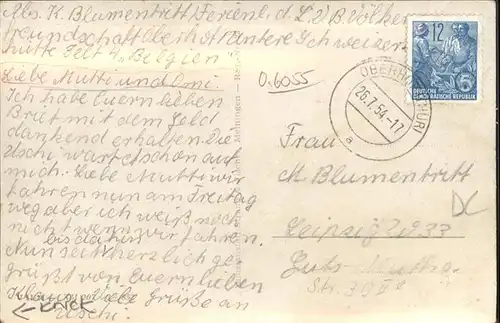 Abs. K. Blumentritt Ferienl. d. L.V.B. Völker
freundschaft Oberhof Untere Schweizer
hütte Zelt 4 „Belgien"
Liebe Mutti und Omi.
Ich habe Euern lieben
Brief mit dem Geld
dankend erhalten. Die
Uschi wartet schon auf
mich. Liebe Mutti wir
fahren nun am Freitag
weg aber ich weiß noch
nicht wenn wir fahren.
bis dahin
Nun seit herzlich ge-
grüßt von Euern lieben
Klaus. Viele Grüße an
Uschi.
← KNICK
0.6055
12
DEUTSCHE
DEMOKRATISCHE REPUBLIK
OBERHOF
26.7.54.-17
a
Frau
M. Blumentritt
Leipzig
Str.
Meiningen